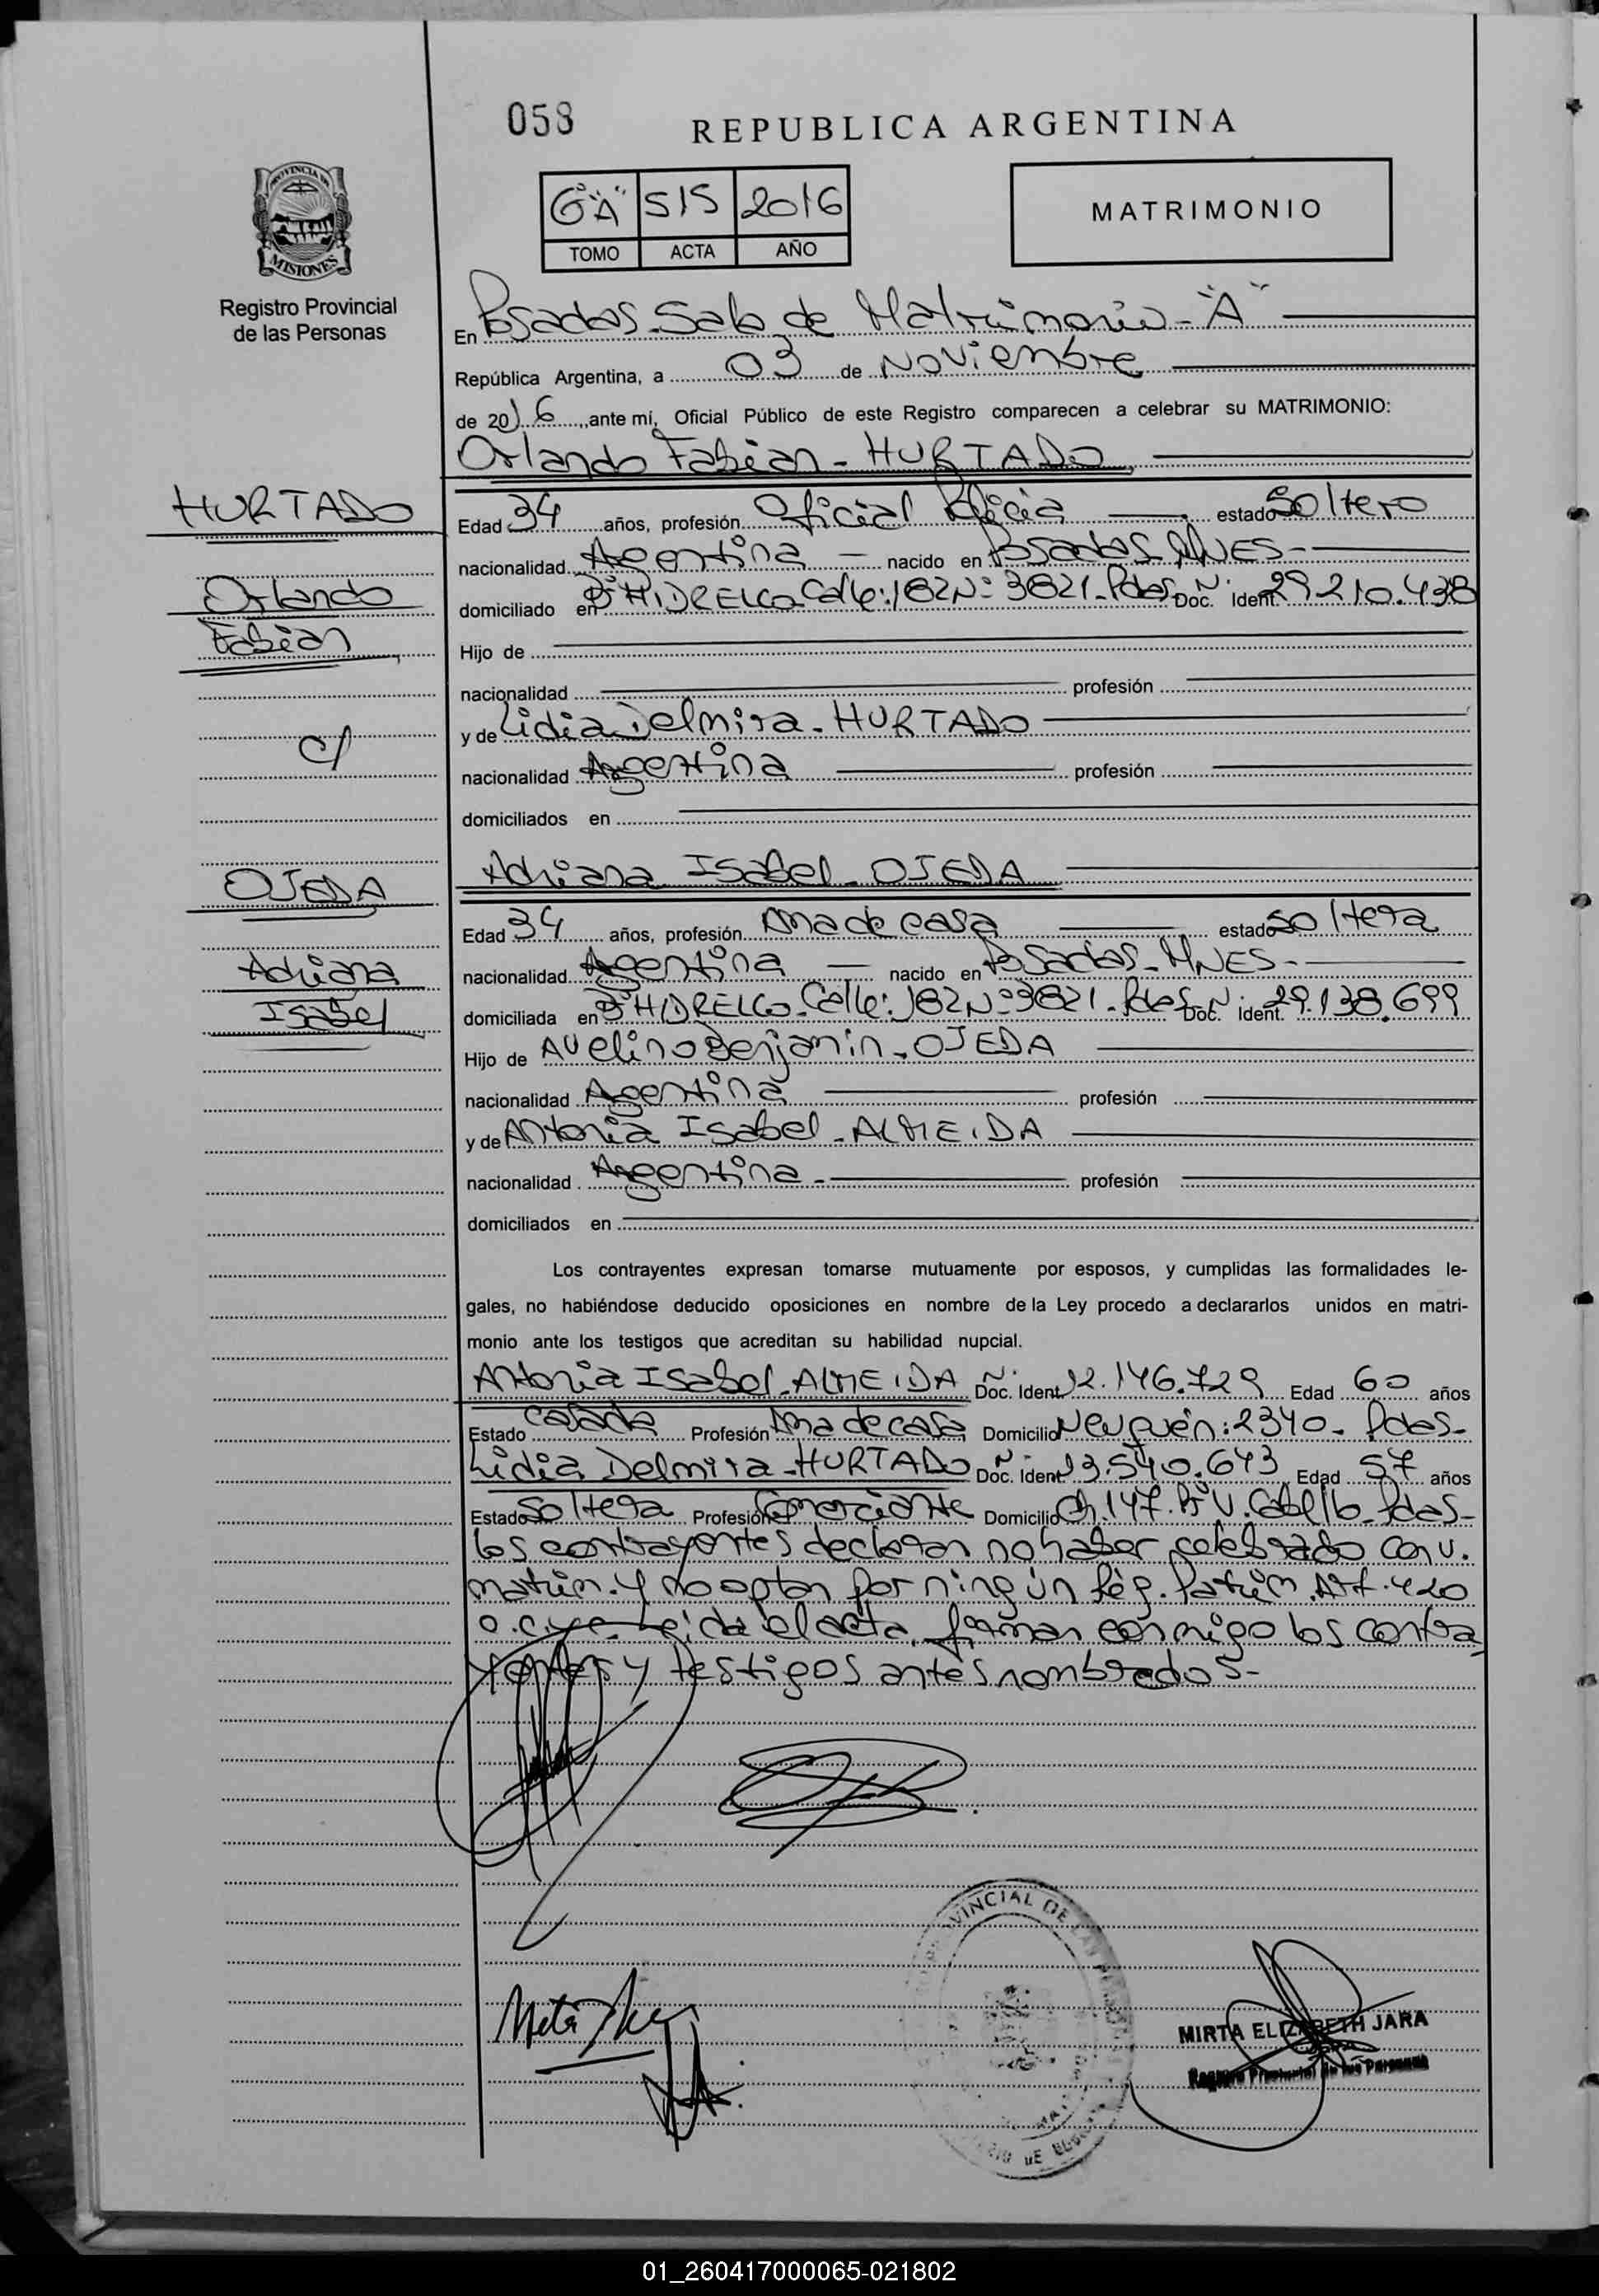 058
REPUBLICA ARGENTINA
PROVINCIA DE
MISIONES
Registro Provincial
de las Personas
6º"A" 515 2016
TOMO ACTA AÑO
MATRIMONIO
En Posadas-Sala de Matrimonio-"A"
República Argentina, a 03 de Noviembre
de 2016, ante mí, Oficial Público de este Registro comparecen a celebrar su MATRIMONIO:
Orlando Fabian-HURTADO
HURTADO
Orlando
Fabian
c/
OJEDA
Adriana
Isabel
Edad 34 años, profesión Oficial Policia estado Soltero
nacionalidad Argentina nacido en Posadas-MNES-
domiciliado en Bº HIDRELCO-Calle:182Nº3821-Pdas Doc. Ident. Nº 29.210.438
Hijo de
nacionalidad profesión
y de Lidia Delmira-HURTADO
nacionalidad Argentina profesión
domiciliados en
Adriana Isabel-OJEDA
Edad 34 años, profesión Ama de casa estado soltera
nacionalidad Argentina nacido en Posadas-MNES-
domiciliada en Bº HIDRELCO-Calle:182Nº3821-Pdas Doc. Ident. Nº 29.138.699
Hijo de Avelino Benjamin-OJEDA
nacionalidad Argentina profesión
y de Antonia Isabel-ALMEIDA
nacionalidad Argentina- profesión
domiciliados en
Los contrayentes expresan tomarse mutuamente por esposos, y cumplidas las formalidades le-
gales, no habiéndose deducido oposiciones en nombre de la Ley procedo a declararlos unidos en matri-
monio ante los testigos que acreditan su habilidad nupcial.
Antonia Isabel-ALMEIDA Doc. Ident. Nº 12.146.729 Edad 60 años
Estado casada Profesión Ama de casa Domicilio Neuquén:2340-Pdas-
Lidia Delmira-HURTADO Doc. Ident. Nº 13.540.643 Edad 57 años
Estado soltera Profesión Comerciante Domicilio Ch.147-Bº V. Cabello-Pdas-
los contrayentes declaran no haber celebrado conv.
matrim. y no optan por ningún Rég. Patrim. Art. 420
Leida el acta, firman conmigo los contra
yentes y testigos antes nombrados-
MIRTA ELIZABETH JARA
Registro Provincial de las Personas
01_260417000065-021802